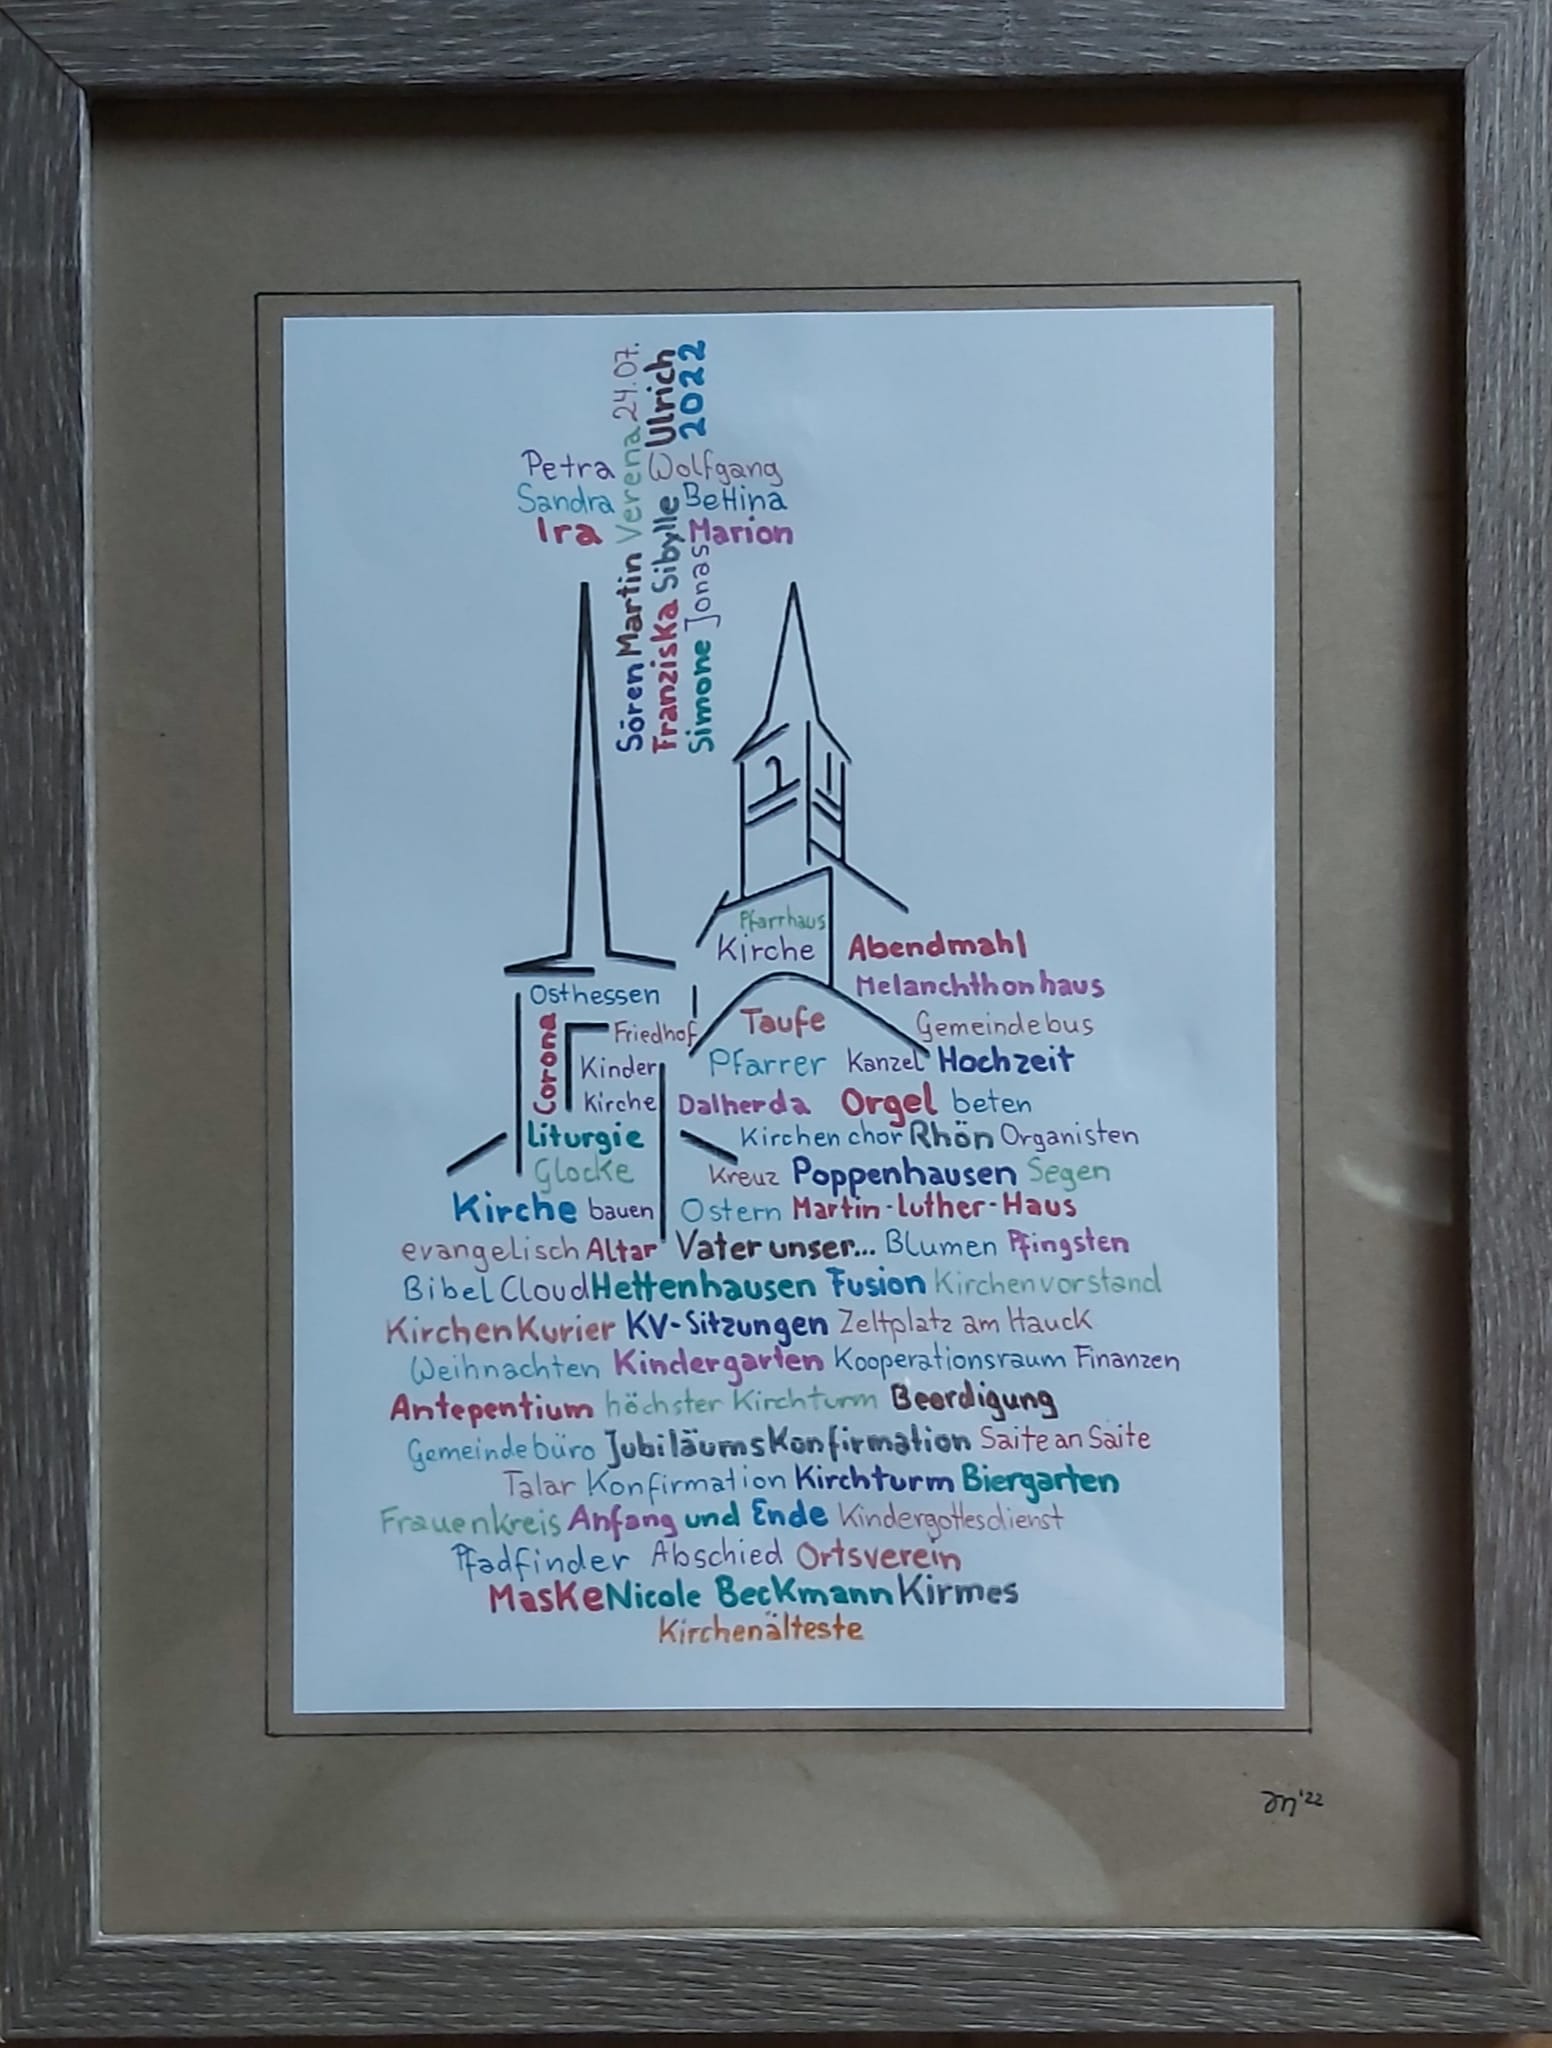 24.07.
Ulrich
2022
Petra Verena Wolfgang
Sandra Bettina
Ira Marion
Sören Martin
Franziska Sibylle
Simone Jonas
Pfarrhaus
Kirche Abendmahl
Melanchthonhaus
Osthessen
Corona
Friedhof Taufe Gemeindebus
Kinder Pfarrer Kanzel Hochzeit
Kirche Dalherda Orgel beten
Liturgie Kirchenchor Rhön Organisten
Glocke Kreuz Poppenhausen Segen
Kirche bauen Ostern Martin-Luther-Haus
evangelisch Altar Vater unser... Blumen Pfingsten
Bibel Cloud Hettenhausen Fusion Kirchenvorstand
KirchenKurier KV-Sitzungen Zeltplatz am Hauck
Weihnachten Kindergarten Kooperationsraum Finanzen
Antepentium höchster Kirchturm Beerdigung
Gemeindebüro JubiläumsKonfirmation Saite an Saite
Talar Konfirmation Kirchturm Biergarten
Frauenkreis Anfang und Ende Kindergottesdienst
Pfadfinder Abschied Ortsverein
Maske Nicole Beckmann Kirmes
Kirchenälteste
'22